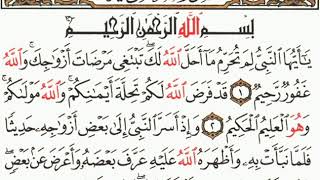 بِسْمِ اللَّهِ الرَّحْمَٰنِ الرَّحِيمِ
يَٰٓأَيُّهَا النَّبِىُّ لِمَ تُحَرِّمُ مَآ أَحَلَّ اللَّهُ لَكَ ۖ تَبْتَغِى مَرْضَاتَ أَزْوَٰجِكَ ۚ وَاللَّهُ
غَفُورٌ رَّحِيمٌ ١ قَدْ فَرَضَ اللَّهُ لَكُمْ تَحِلَّةَ أَيْمَٰنِكُمْ ۚ وَاللَّهُ مَوْلَىٰكُمْ ۖ
وَهُوَ الْعَلِيمُ الْحَكِيمُ ٢ وَإِذْ أَسَرَّ النَّبِىُّ إِلَىٰ بَعْضِ أَزْوَٰجِهِ حَدِيثًا
فَلَمَّا نَبَّأَتْ بِهِ وَأَظْهَرَهُ اللَّهُ عَلَيْهِ عَرَّفَ بَعْضَهُ وَأَعْرَضَ عَنْ بَعْضٍ ۖ